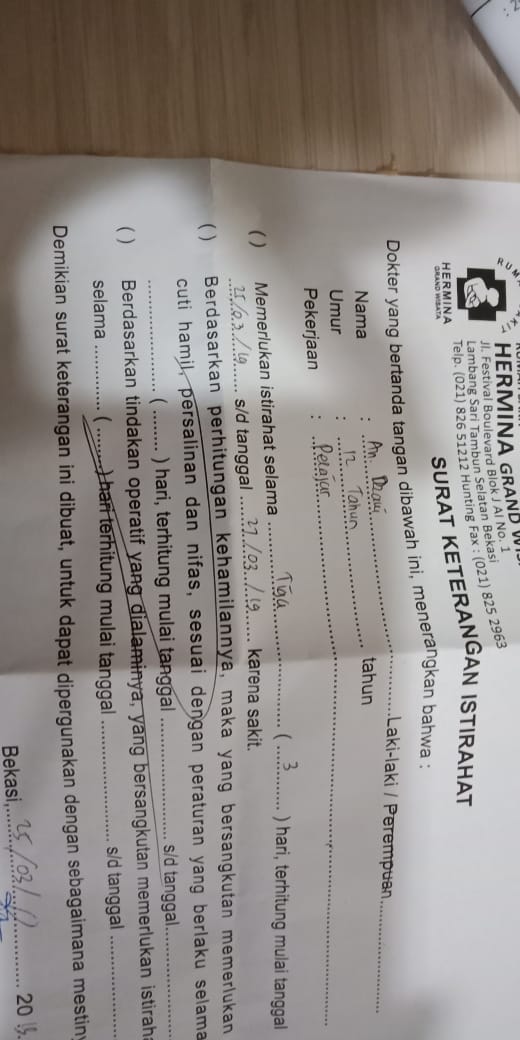 HERMINA GRAND
Jl. Festival Boulevard Blok J Al No. 1
Lambang Sari Tambun Selatan Bekasi
Telp. (021) 826 51212 Hunting Fax : (021) 825 2963
HERMINA
GRAND WISATA
SURAT KETERANGAN ISTIRAHAT
Dokter yang bertanda tangan dibawah ini, menerangkan bahwa :
Nama : An. Laki-laki / Perempuan
Umur : 12 Tahun tahun
Pekerjaan : Pelajar
( ) Memerlukan istirahat selama Tiga ( 3 ) hari, terhitung mulai tanggal
25/03/19 s/d tanggal 27/03/19 karena sakit.
( ) Berdasarkan perhitungan kehamilannya, maka yang bersangkutan memerlukan
cuti hamil, persalinan dan nifas, sesuai dengan peraturan yang berlaku selama
( ) hari, terhitung mulai tanggal s/d tanggal
( ) Berdasarkan tindakan operatif yang dialaminya, yang bersangkutan memerlukan istirah
selama ( ) hari terhitung mulai tanggal s/d tanggal
Demikian surat keterangan ini dibuat, untuk dapat dipergunakan dengan sebagaimana mestin
Bekasi, 25/03/ 20